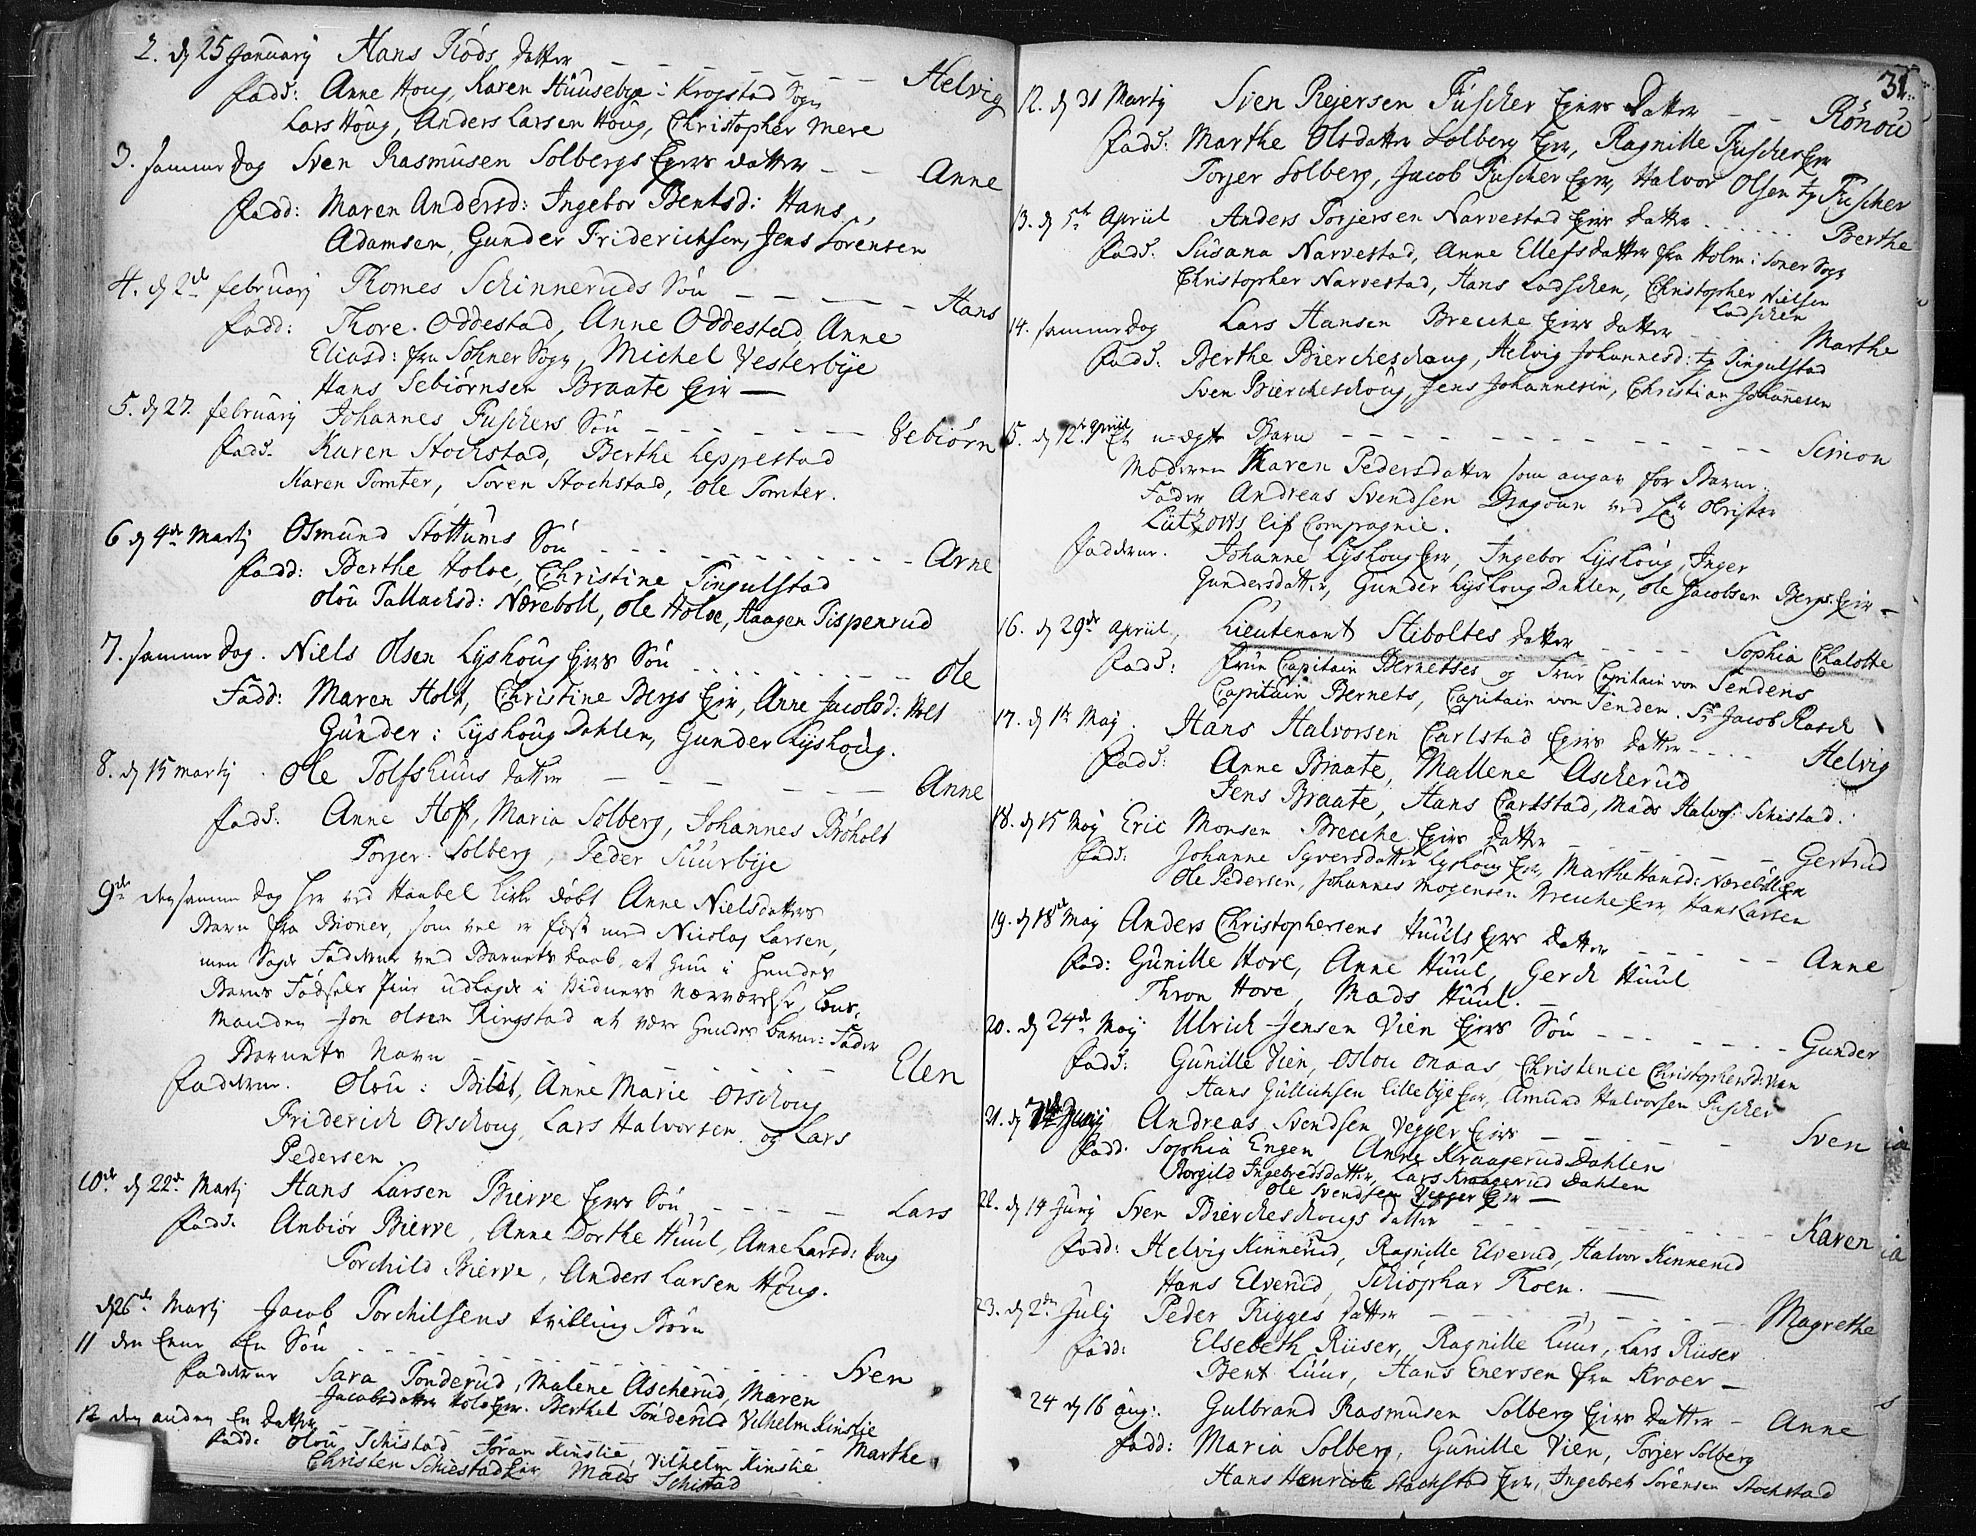 2. d 25 January Hans Riøds datter - - - - Helvig
Fadd: Anne Houg, Karen Huuseby i Krogstad Sogn
Lars Houg, Anders Larsen Houg, Christopher Mere
3. samme dag Sven Rasmusen Solbergs Eyers datter - - Anne
Fadd: Maren Andersd: Ingebor Bentsd: Hans
Adamsen, Gunder Friderichsen, Jens Sørensen
4. d 2de february Thomes Schinneruds Søn - - - - Hans
Fadd: Thore Oddestad, Anne Oddestad, Anne
Eliasd: fra Sohner Sogn, Michel Vesterbye
Hans Sebiørnsen Braate Eyer
5. d 27. february Johannes Fuschers Søn - - - - Sebiørn
Fadd. Karen Stochstad, Berthe Leppestad
Karen Tomter, Søren Stochstad, Ole Tomter.
6 d 4de Martj Osmund Støttums Søn - - - - Arne
Fadd: Berthe Holoe, Christine Tingulstad
Olou Tallachsd: Nærebøll, Ole Holoe, Haagen Tispenrud
7. samme dag. Niels Olsen Lyshoug Eyers Søn - - - - Ole
Fadd: Maren Holt, Christine Bergs Eyer, Anne Jacobsd: Holt
Gunder: Lyshoug Dahlen, Gunder Lyshoug.
8. d 15 martij. Ole Tolfshuus datter - - - - Anne
Fadd: Anne Hoff, Maria Solberg, Johannes Brøholt
Torger Solberg, Peder Suurbye
9de den samme dag her ved Haabel Kirke døbt Anne Nielsdatters
Barn fra Bioner, som vel er fæst med Nicolay Larsen,
men Sagde Fadderne ved Barnets daab, at hun i hendes
Barns Fødsels Pine udlagde i Vidners nærværelse, Lens-
manden Jon Olsen Ringstad at være hendes barne: Fader
Barnets Navn - - - - Elen
Fadderne. Olou: Bilet, Anne Marie Orschoug
Friderich Orschoug, Lars Halvorsen og Lars
Pedersen.
10de d 22de Martj Hans Larsen Bierve Eyers Søn - - - - Lars
Fadd. Anbiør Bierve, Anne Dorthe Huul, Anne Larsd: Houg
Torchild Bierve, Anders Larsen Houg.
d 26de Martj Jacob Torchilsens tvilling Børn
11 den Eene En Søn - - - - Sven
Fadderne Sara Tonderud, Malene Ascherud, Maren
Jacobsdatter Holo Eyer. Berthel Tonderud Vilhelm Kinslie
12 den anden En datter - - - - Marthe
Fadd: Olou Schistad Jøran Kinslie, Vilhelm Kinslie
Christen Schiestad Eyer Mads Schistad
31.
12. d 31 Martj Sven Rejersen Fuscher Eyers Datter - - Rønou
Fadd: Marthe Olsdatter Solberg Eyer, Ragnille Fuscher Eyer
Torjer Solberg, Jacob Fuscher Eyer, Halvor Olsen Fuscher
13. d 5te Apriil Anders Torjersen Narvestad Eyers datter - - - Berthe
Fadd. Susana Narvestad, Anne Ellefsdatter fra Holm i Soner Sogn
Christopher Narvestad, Hans Ladschen, Christopher Nielsen
Ladschen
14. samme dag Lars Hansen Brecche Eyers datter - - - Marthe
Fadd: Berthe Bierckeschoug, Helvig Johannesd: Tingulstad
Sven Bierckeschoug, Jens Johannesen, Christian Johannesen
15. d 12te Apriil Et u-ægte Barn - - - - Simon
Moderen Karen Pedersdatter som angav for Barne-
Fader Andreas Svendsen Dragoun ved Hr Obrister
Lützows Lif Compagnie.
Fadderne. Johanne Lyshoug Eyer, Ingebor Lyshoug, Inger
Gundersdatter, Gunder Lyshoug Dahlen, Ole Jacobsen Bergs Eyer -
16. d 29de Apriil, Lieutenant Stiboltes datter - - - - Sophia Chalotte
Fadd: Frue Capitain Bernettses og Frue Capitain von Tendens
Capitain Bernets, Capitain von Tenden. Sr Jacob Rasch
17. d 1te Maj. Hans Halvorsen Carlstad Eyers datter - - - Helvig
Fadd: Anne Braate, Mallene Ascherud
Jens Braate, Hans Carlstad, Mads Halvors: Schistad.
18. d 15 Maj Eric Monsen Brecche Eyers datter - - - - Gertrud
Fadd: Johanne Syversdatter Lyshoug Eyer, Marthe Hansd: Nærebøll Eyer
Ole Pedersen, Johannes Mogensen Brecche Eyer, Hans Larsen
19. d 18de Maj Anders Christophersens Huuls Eyers datter - - - - Anne
Fad: Gunille Hove, Anne Huul, Gerdt Huul
Thron Hove, Mads Huul. -
20. d 24de Maj Ulrich Jensen Vien Eyers Søn - - - - Gunder
Fadd: Gunille Vien, Oslou Onaas, Christence Christophersd: Vien
Hans Gullichsen Lillebye Eyer, Amund Halvorsen Fuscher
21. d Junij Andreas Svendsen Vegger Eyers - - - - Sven
Fadd. Sophia Engen, Anne Kraagerud Dahlen
Borgild Ingebredsdatter, Lars Kraagerud Dahlen
Ole Svendsen Vegger Eyer -
22. d 14 Junj Sven Bierckeschougs datter - - - - Karen
Fadd: Helvig Kinnerud, Ragnille Elverud, Halvor Kinnerud
Hans Elverud, Schiøphar Thoen.
23. d 2de Julj Peder Rigges datter - - - - Magrethe
Fadd: Elsebeth Riiser, Ragnille Luur, Lars Riiser
Bent Luur, Hans Enersen fra Kroer -
24 d 16 aug: Gulbrand Rasmusen Solberg Eyers datter - Anne
Fadd: Maria Solberg, Gunille Vien, Torjer Solberg
Hans Henrich Stochstad Eyer, Ingebret Sørensen Stochstad